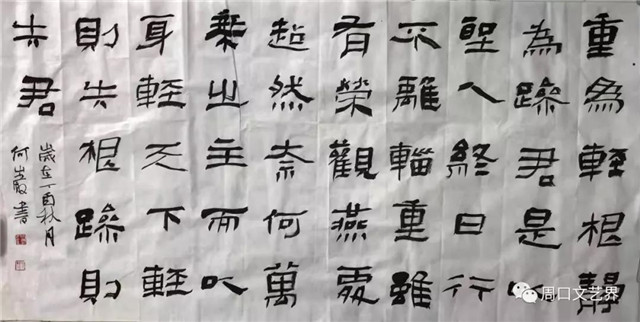 重爲輕根靜
為躁君是以
聖人終日行
不離輜重雖
有榮觀燕處
超然奈何萬
乘之主而以
身輕天下輕
則失根躁則
失君
歲在丁酉秋月
何 書
周口文艺界